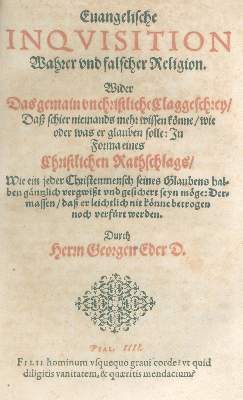 Euangelische
INQVISITION
Wahrer vnd falscher Religion.
Wider
Das gemain vnchristliche Claggeschrey/
Daß schier niemands mehr wissen könne/ wie
oder was er glauben solle: In
Forma eines
Christlichen Rathschlags/
Wie ein jeder Christenmensch seines Glaubens hal-
ben gäntzlich vergwißt vnd gesichert seyn möge: Der-
massen/ daß er leichtlich nit könne betrogen
noch verfürt werden.
Durch
Herrn Georgen Eder D.
PSAL. IIII.
FILII hominum vsquequo graui corde? vt quid
diligitis vanitatem, & quæritis mendacium?